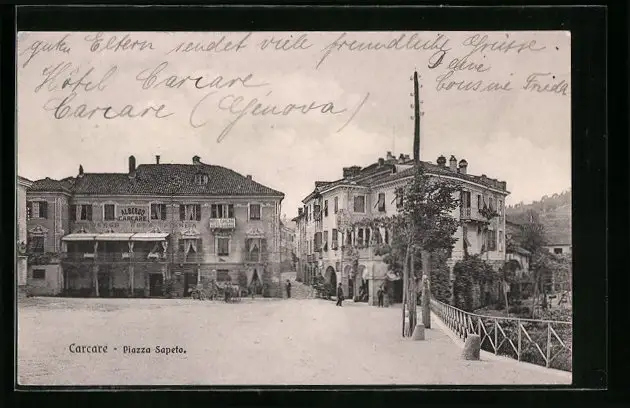 guten Eltern sendet viele freundliche Grüsse.
Deine
Hôtel Carcare
Cousine Frieda
Carcare (Génova)
ALBERGO
CARCARE
Carcare - Piazza Sapeto.